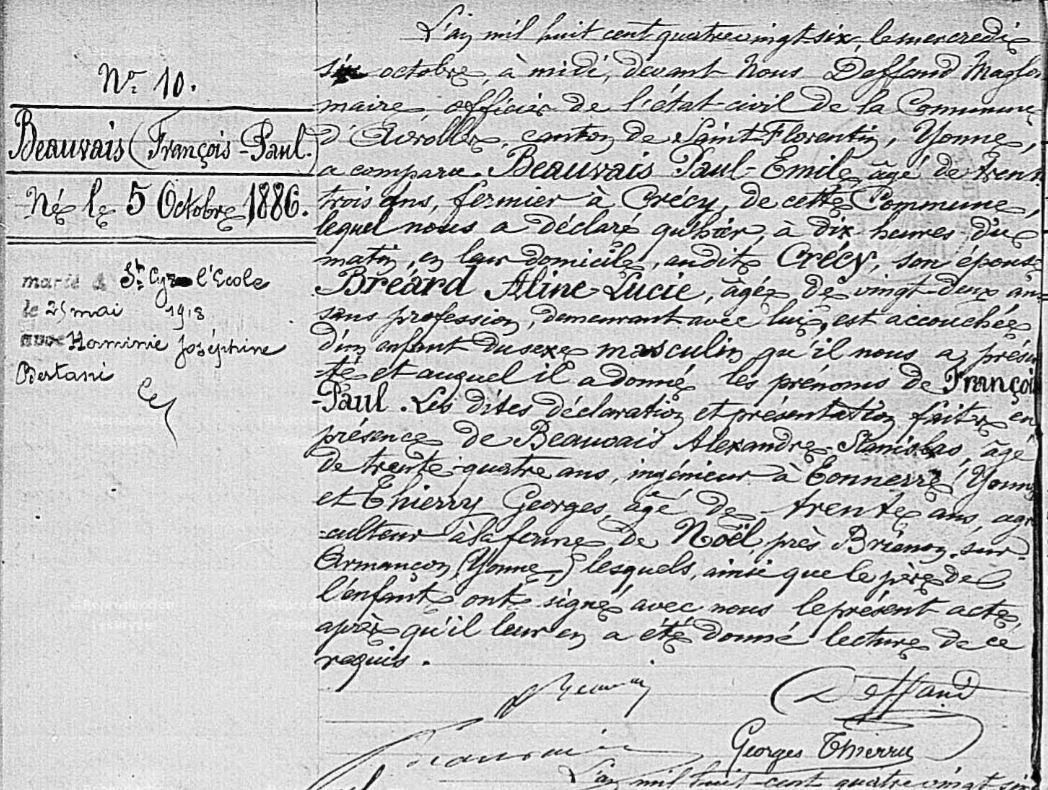 Nr 10.
Beauvais (François-Paul.)
Né le 5 Octobre 1886.
marié à St Cyr l'Ecole
le 25 mai 1918
avec Herminie Joséphine
Bertani
L'an mil huit cent quatre vingt six, le mercredi
six octobre à midi, devant Nous Deffand
maire officier de l'état-civil de la Commune
d'Avrolles, canton de Saint-Florentin, Yonne,
a comparu Beauvais Paul-Emile, âgé de trente
trois ans, fermier à Crécy, de cette Commune,
lequel nous a déclaré qu'hier, à dix heures du
matin, en leur domicile, audit Crécy, son épouse
Bréard Aline-Lucie, âgée de vingt deux ans
sans profession, demeurant avec lui, est accouchée
d'un enfant du sexe masculin qu'il nous a présen
-té et auquel il a donné les prénoms de François
-Paul. Les dites déclaration et présentation faites en
présence de Beauvais Alexandre Stanislas, âgé
de trente-quatre ans, ingénieur à Tonnerre, Yonne
et Thierry Georges âgé de trente ans, agri
-culteur à la ferme de Noël, près Brienon-sur-
Armançon (Yonne,) lesquels, ainsi que le père de
l'enfant, ont signé avec nous le présent acte,
après qu'il leur en a été donné lecture de ce
requis.
Beauvais Deffand
Georges Thierry
Beauvais
L'an mil huit cent quatre vingt six